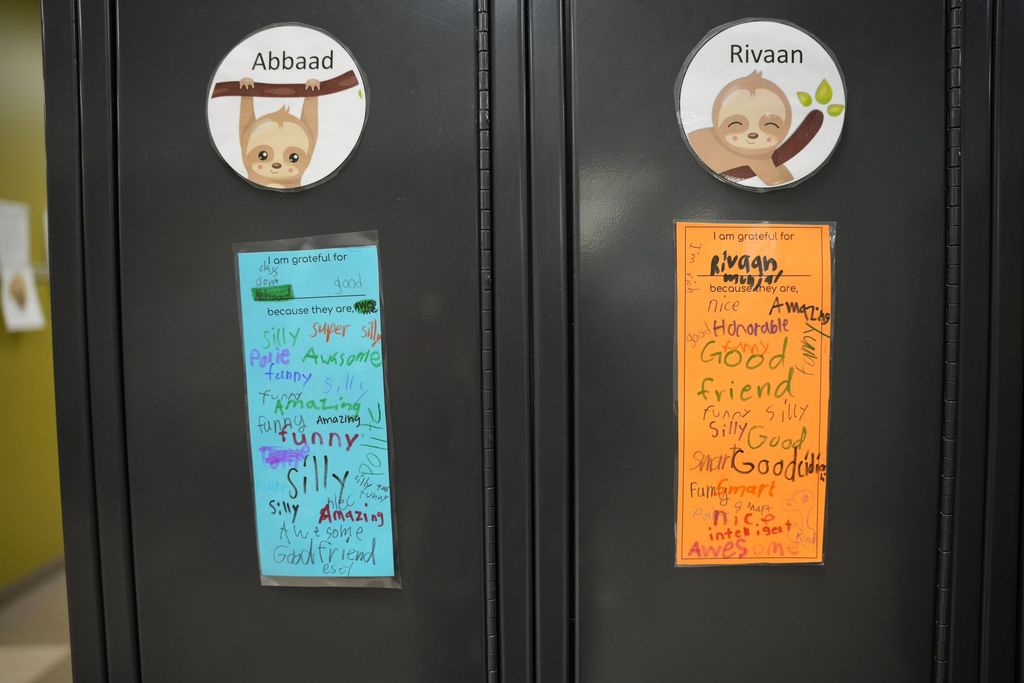 Abbaad
I am grateful for
class
clown
good
Abbaad
because they are, awesome
silly super silly
Polie Awesome
funny silly
funny
Amazing
funny Amazing
funny
POlite
silly
silly and
funny
nice
silly Amazing
Awesome
Good friend
Rivaan
I am grateful for
Rivaan
because they are,
nice Amazing
good Honorable
funny
funny
Good
friend
funny silly
Silly Good
smart Good
Funny Smart
smart
nice
kind
intelligent
Awesome